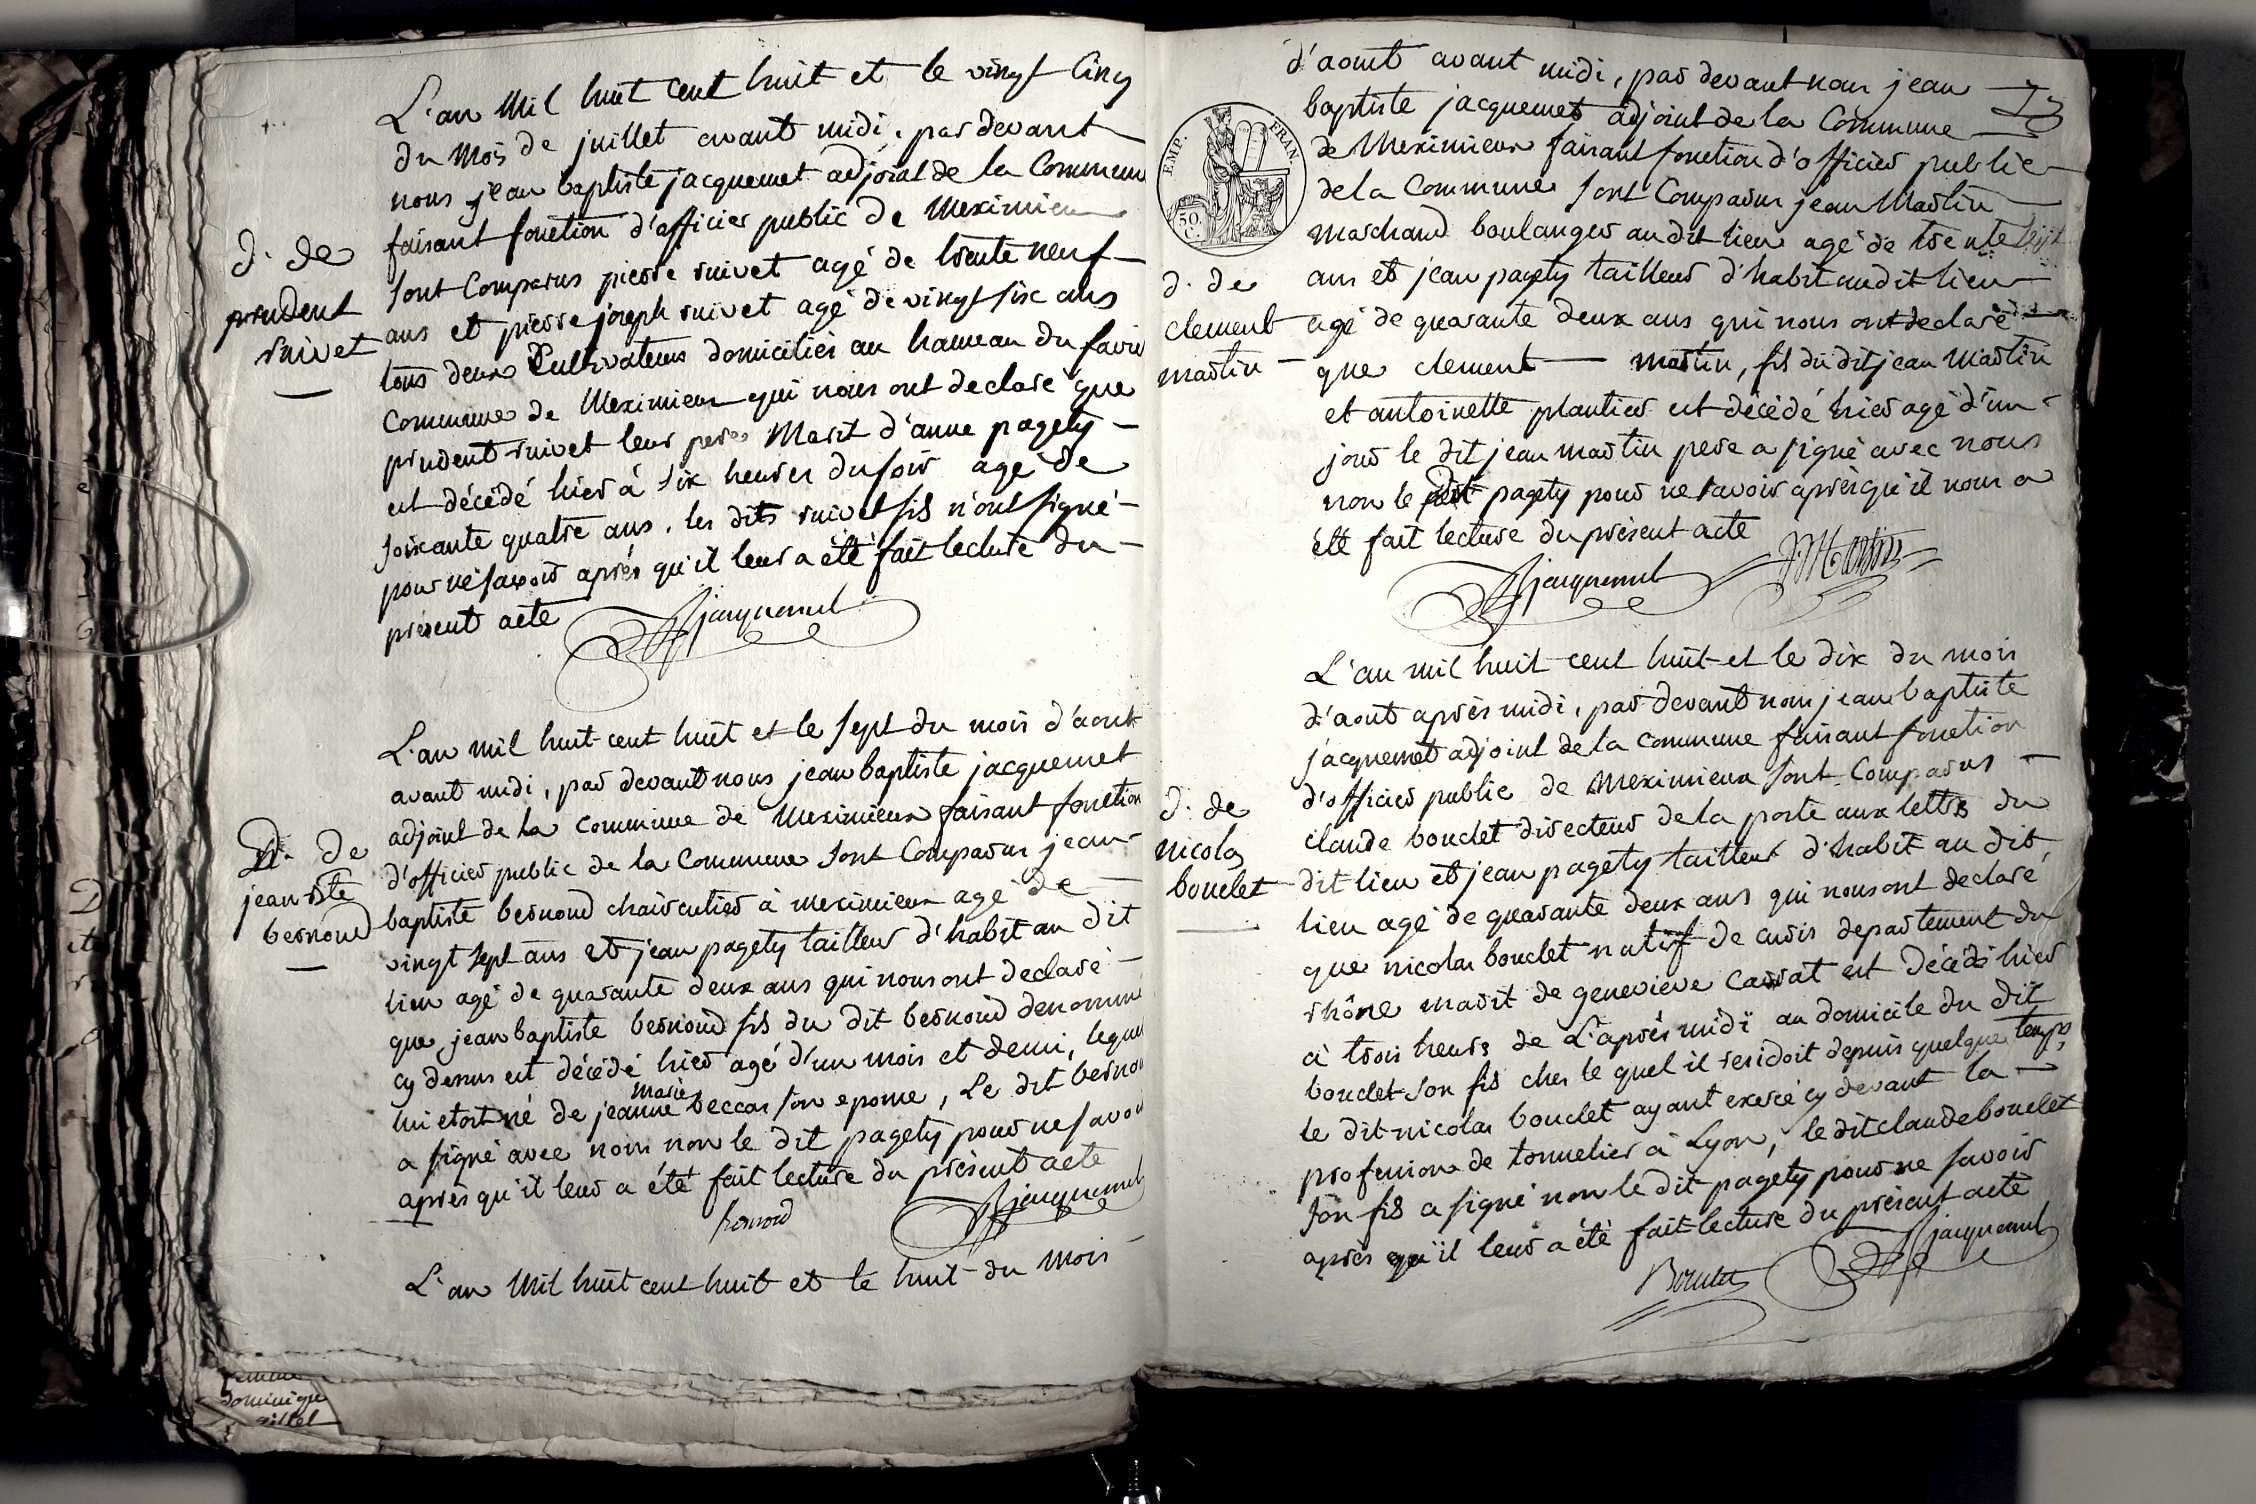 L'an Mil huit cent huit et le vingt cinq
du Mois de juillet avant midi, par devant
nous jean baptiste jacquemet adjoint de la Commune
faisant fonction d'officier public de Meximieux
sont Comparus pierre ruivet agé de trente neuf
ans et pierre joseph ruivet agé de vingt six ans
tous deux Cultivateurs domiciliés au hameau du
Commune de Meximieux qui nous ont declaré que
prudent ruivet leur pere Marit d'anne pagety
est décédé hier à six heures du soir agé de
soixante quatre ans. les dits ruivet fils n'ont signé
pour ne savoir après qu'il leur a été fait lecture du
présent acte
jacquemet
d. de
prudent
ruivet
L'an mil huit cent huit et le sept du mois d'aout
avant midi, par devant nous jean baptiste jacquemet
adjoint de la commune de Meximieux faisant fonction
d'officier public de la Commune sont Comparus jean
baptiste bernoud chaircutier à meximieux agé de
vingt sept ans et jean pagety tailleur d'habit au dit
lieu agé de quarante deux ans qui nous ont declaré
que jean baptiste bernoud fils du dit bernoud denommé
cy dessus est décédé hier agé d'un mois et demi, lequel
lui etoit né de jeanne marie beccas son epouse, Le dit bernoud
a signé avec nous non le dit pagety pour ne savoir
après qu'il leur a été fait lecture du présent acte
bernoud jacquemet
D. de
jean bte
bernoud
L'an Mil huit cent huit et le huit du mois
d'aout avant midi, par devant nous jean
baptiste jacquemet adjoint de la Commune
de Meximieux faisant fonction d'officier public
de la Commune sont Comparus jean Martin
marchand boulanger au dit lieu agé de trente sept
ans et jean pagety tailleur d'habit audit lieu
agé de quarante deux ans qui nous ont declaré
que clement martin, fils du dit jean Martin
et antoinette plantier est décédé hier agé d'un
jour le dit jean martin pere a signé avec nous
non le dit pagety pour ne savoir après qu'il nous a
été fait lecture du présent acte
jacquemet JMartin
EMP. FRAN.
50 C.
d. de
clement
martin
L'an mil huit cent huit et le dix du mois
d'aout après midi, par devant nous jean baptiste
jacquemet adjoint de la commune faisant fonction
d'officier public de Meximieux sont Comparus
claude bouclet directeur de la poste aux lettres du
dit lieu et jean pagety tailleur d'habit au dit
lieu agé de quarante deux ans qui nous ont declaré
que nicolas bouclet natif de curis departement du
rhône marit de genevieve est décédé hier
à trois heures de L'après midi au domicile du dit
bouclet son fils ches le quel il residoit depuis quelque temps,
le dit nicolas bouclet ayant exercé cy devant la
profession de tonnelier à Lyon, le dit claude bouclet
son fils a signé non le dit pagety pour ne savoir
après qu'il leur a été fait lecture du présent acte
Bouclet jacquemet
d. de
nicolas
bouclet
dominique